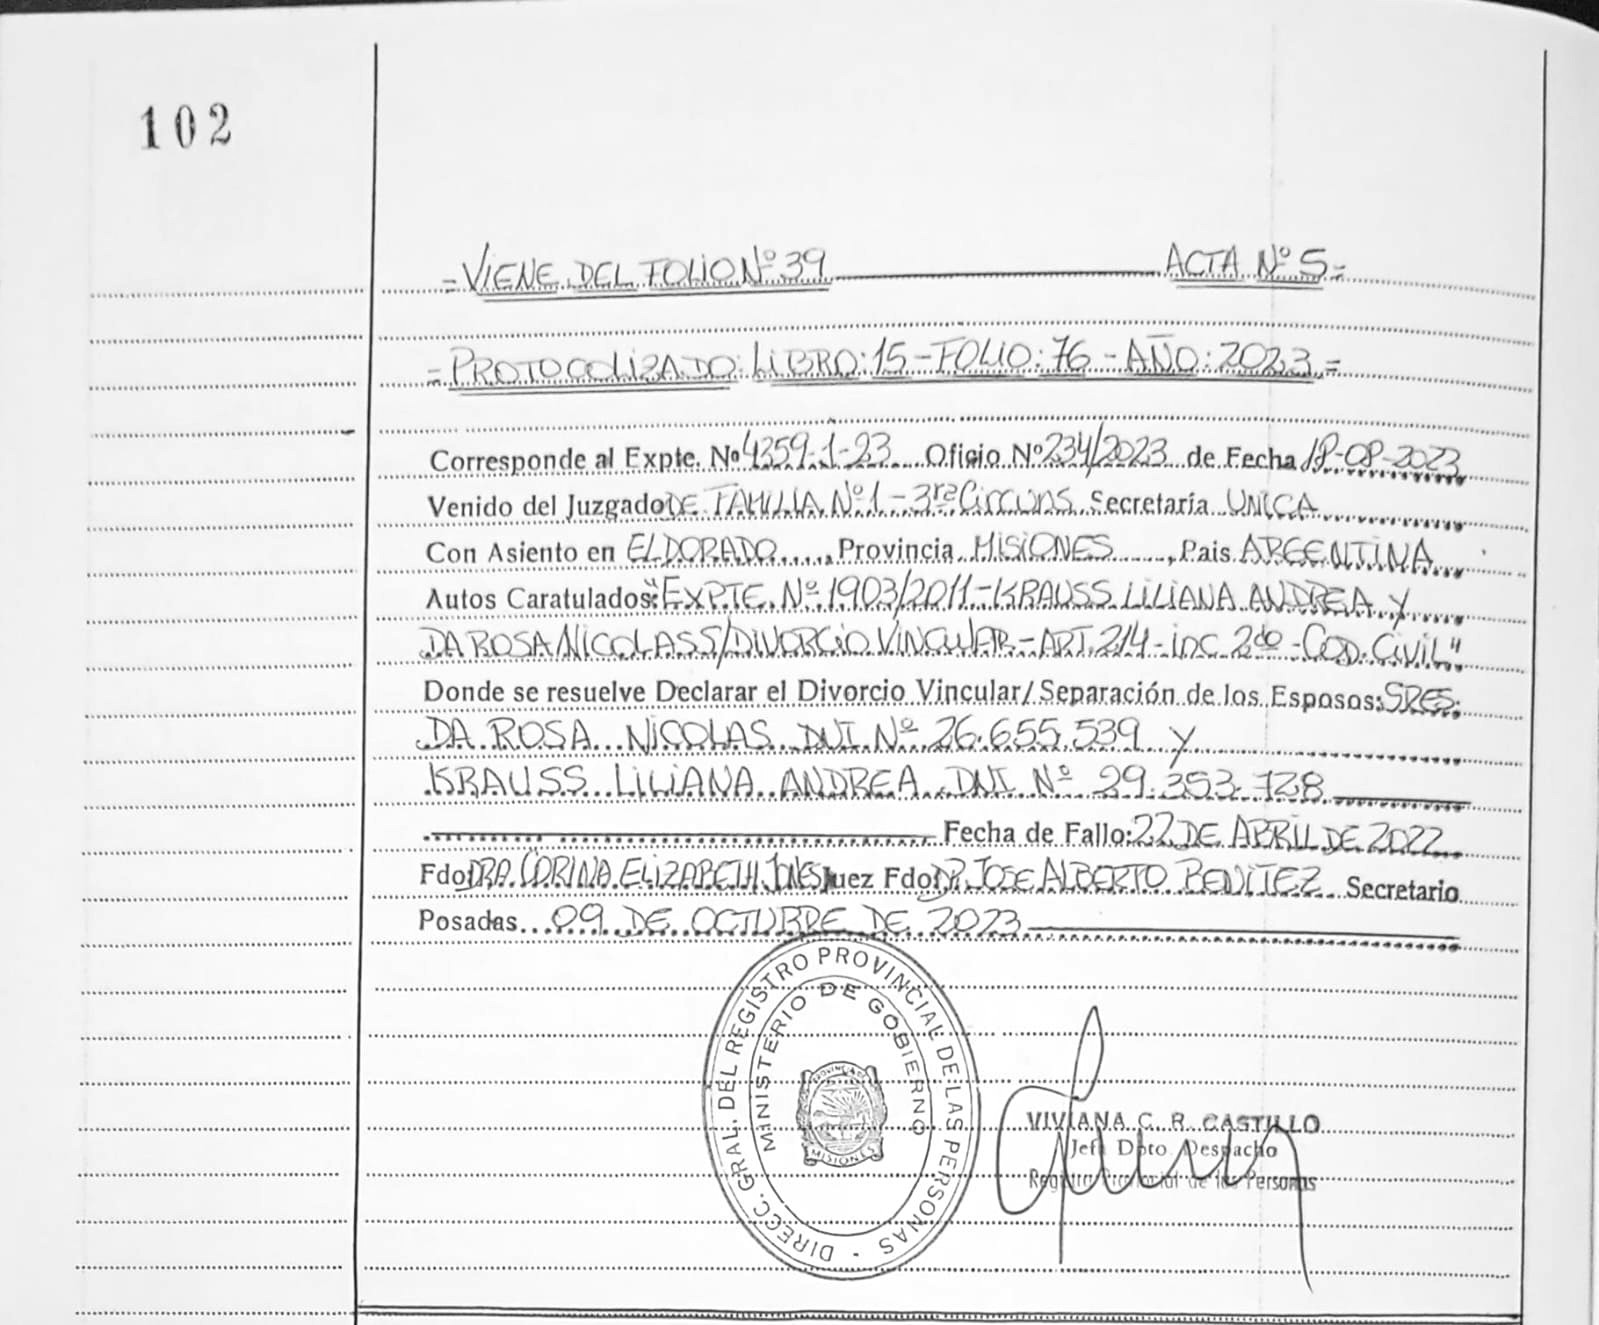 102
=VIENE DEL FOLIO Nº 39 ACTA Nº 5=
=PROTOCOLIZADO: LIBRO: 15 - FOLIO: 76 - AÑO: 2023=
Corresponde al Expte. Nº 4359-1-23 Oficio Nº 234/2023 de Fecha 18-08-2023
Venido del Juzgado DE FAMILIA Nº 1 - 3ra Circuns. Secretaría UNICA
Con Asiento en ELDORADO, Provincia MISIONES, Pais ARGENTINA
Autos Caratulados: "EXPTE. Nº 1903/2011 - KRAUSS LILIANA ANDREA Y
DA ROSA NICOLAS S/DIVORCIO VINCULAR - ART. 214 - inc. 2do - COD. Civil"
Donde se resuelve Declarar el Divorcio Vincular/Separación de los Esposos: SRES.
DA ROSA NICOLAS DNI Nº 26.655.539 y
KRAUSS LILIANA ANDREA DNI Nº 29.353.728
Fecha de Fallo: 22 DE ABRIL DE 2022
Fdo: DRA. CORINA ELIZABETH JONES Juez Fdo: DR. JOSE ALBERTO BENITEZ Secretario
Posadas 09 DE OCTUBRE DE 2023
DIRECC. GRAL. DEL REGISTRO PROVINCIAL DE LAS PERSONAS
MINISTERIO DE GOBIERNO
PROVINCIA DE
MISIONES
VIVIANA C. R. CASTILLO
Jefa Dpto. Despacho
Registro Provincial de las Personas